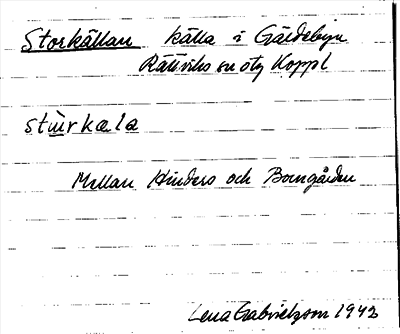 Storkällan källa i Gärdebyn
Rättviks sn o tg Koppl
stùrkæla
Mellan Hinders och Bomgården
Lena Gabrielzson 1942